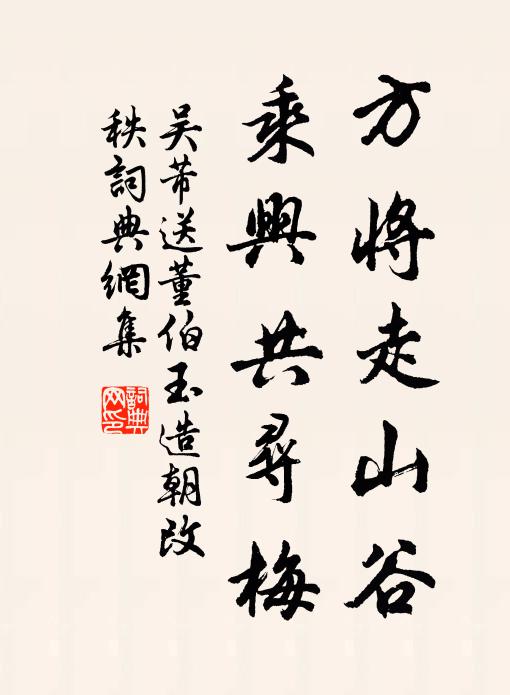 方將走山谷
乘興共尋梅
吴芾送董伯玉造朝改
秩詞典網集
詞典网印